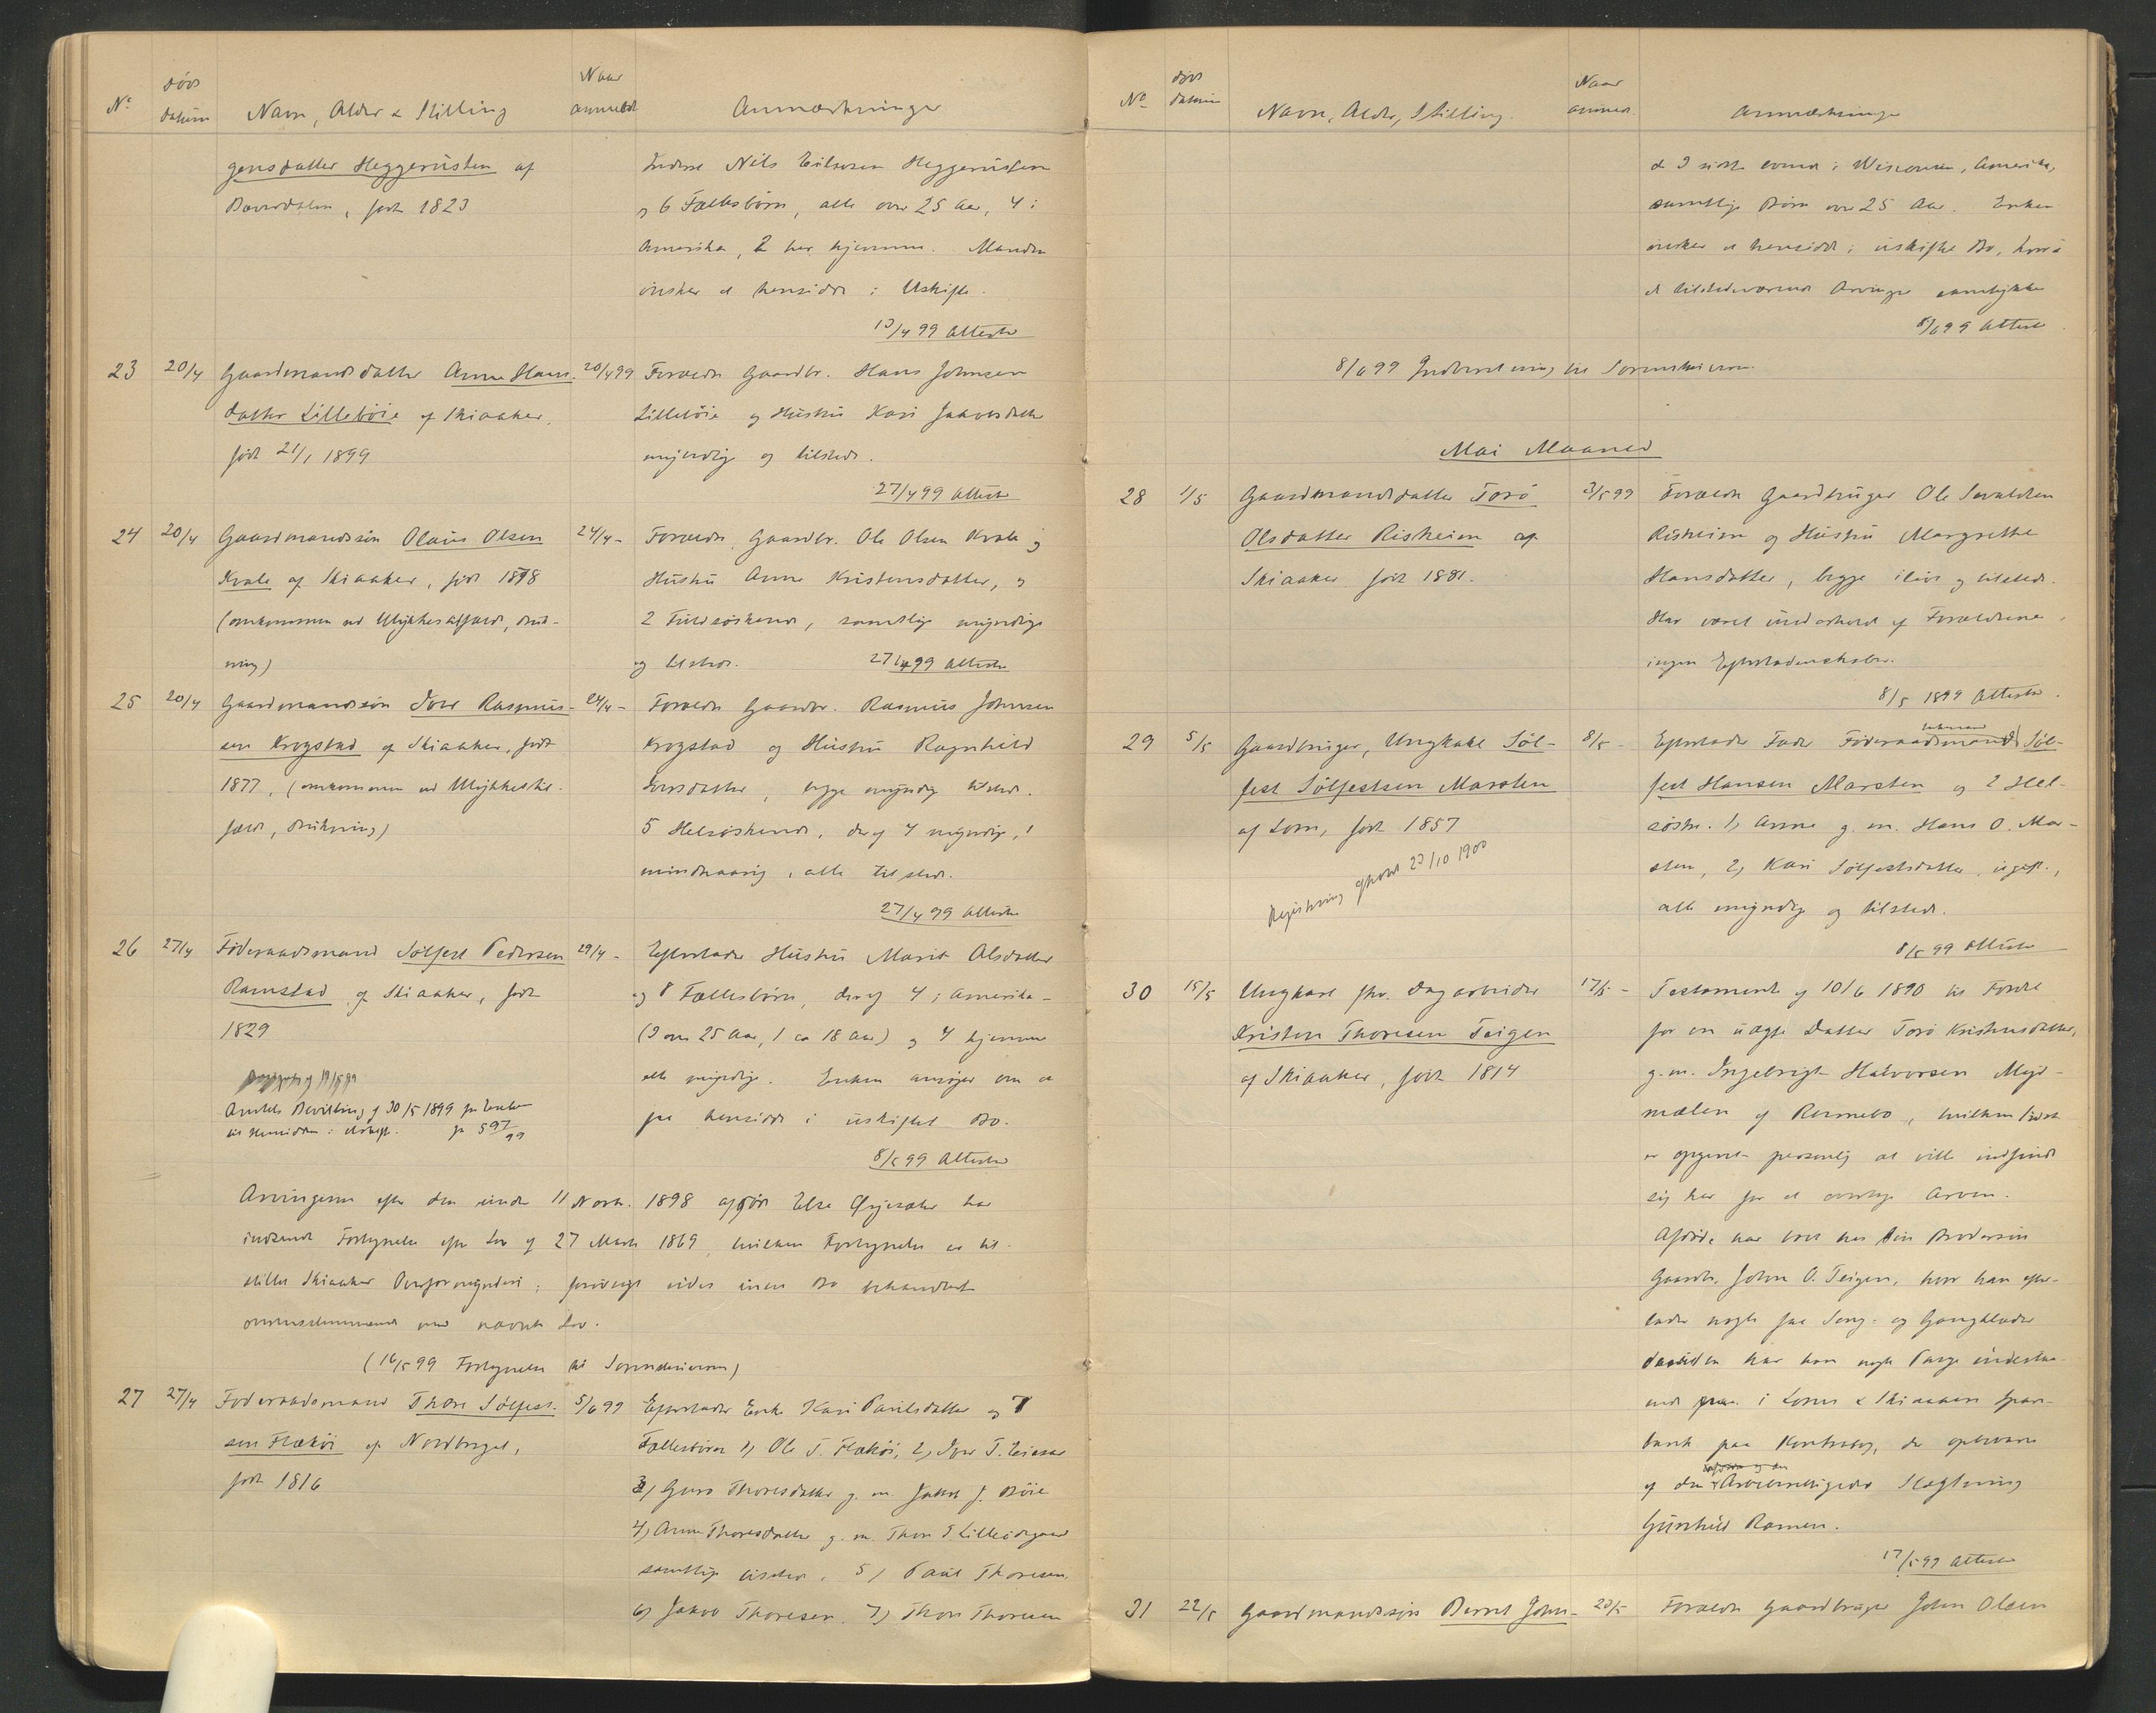 No døds datum Navn, Alder & Stilling Naar anmeldt Anmærkninger
gensdatter Heggerusten af
Bøverdalen, født 1823
Inderst Nils Eilevsen Heggerusten
og 6 Fællesbørn, alle over 25 Aar, 4 i
Amerika, 2 her hjemme. Manden
ønsker at hensidde i Uskifte.
13/4 99 Attester
23 20/4 Gaardmandsdatter Anne Hans-
datter Lillebøie af Skiaaker,
født 21/1 1899
20/4 99 Forældre Gaardbr. Hans Johnsen
Lillebøie og Hustru Kari Jakobsdatter
myndige og tilstede.
27/4 99 Attester
24 20/4 Gaardmandssøn Olaus Olsen
Kvale af Skiaaker, født 1878
(omkommen ved Ulykkestilfælde, druk-
ning)
24/4 - Forældre, Gaardbr. Ole Olsen Kvale og
Hustru Anne Kristensdatter, og
2 Fuldsøskende, samtlige myndige
og tilstede. 27/4 99 Attester
25 20/4 Gaardmandssøn Iver Rasmus-
sen Krogstad af Skiaaker, født
1877, (omkommen ved Ulykkestil-
fælde, drukning)
24/4 - Forældre Gaardbr. Rasmus Johnsen
Krogstad og Hustru Ragnhild
Iversdatter, begge myndige tilstede.
5 Helsøskende, deraf 4 myndige, 1
mindreaarig, alle tilstede.
27/4 99 Attester
26 27/4 Føderaadsmand Sølfest Pedersen
Ramstad af Skiaaker, født
1829
Amtets Bevilling af 30/5 1899 for Enken
til Hensidden i Uskift. jr 597/99
29/4 - Efterlader Hustru Marit Olsdatter
og 8 Fællesbørn, deraf 4 i Amerika -
(3 over 25 Aar, 1 ca 18 Aar) og 4 hjemme
alle myndige. Enken ansøger om at
faa hensidde i uskiftet Bo.
8/5 99 Attester
Arvingerne efter den under 11 Novbr. 1898 afdøde Else Øyjesæter har
indsendt Forlygnelse efter Lov af 27 Marts 1869, hvilken Forlygnelse er til-
stillet Skiaaker Overformynderi; forøvrigt vides intet Bo behandlet
overensstemmende med nævnte Lov.
(16/5 99 Forlygnelse til Sorenskriveren)
27 27/4 Føderaadsmand Thore Sølfest-
sen Flækøi af Nordberget,
født 1816
5/6 99 Efterlader Enke Kari Paulsdatter og 7
Fællesbørn 1) Ole T. Flækøi, 2) Iver T.
3) Guro Thoresdatter g. m. Jakob J. Bøie
4) Anne Thoresdatter g. m. Thor T Lilleødegaard
samtlige tilstede. 5) Paul Thoresen,
6) Jakob Thoresen. 7) Thor Thoresen
No døds datum Navn, Alder, Stilling. Naar anmeldt Anmærkninger
de 3 sidste boende i Wisconsin, Amerika,
samtlige Børn over 25 Aar. Enken
ønsker at hensidde i uskiftet Bo, hvori
de tilstedeværende Arvinger samtykker
8/6 99 Attester
8/6 99 Indberetning til Sorenskriveren.
Mai Maaned
28 1/5 Gaardmandsdatter Torø
Olsdatter Risheim af
Skiaaker født 1881.
3/5 99 Forældre Gaardbruger Ole Sevaldsen
Risheim og Hustru Margrethe
Hansdatter, begge ilive og tilstede.
Har været underholdt af Forældrene,
ingen Efterladenskaber.
8/5 1899 Attester.
29 5/5 Gaardbruger, Ungkarl Søl-
fest Sølfestsen Marsten
af Lom, født 1857
Registrering afholdt 23/10 1900
8/5 - Efterlader Fader Føderaadsmand Søl-
fest Hansen Marsten og 2 Hel-
søstre. 1) Anne g. m. Hans O. Mar-
sten, 2) Kari Sølfestsdatter, ugift,
alle myndige og tilstede.
8/5 99 Attester
30 15/5 Ungkarl fhv. Dagarbeider
Kristen Thoresen Teigen
af Skiaaker, født 1814
17/5 - Testament af 10/6 1890 til Fordel
for en uægte Datter Torø Kristensdatter,
g. m. Ingebrigt Halvorsen Myd-
mælen af Rennebo, hvilken sidst
er opgivet personlig at ville indfinde
sig her for at overtage Arven.
Afdøde har boet hos sin Brodersøn
Gaardb. John O. Teigen, hvor han efter-
lader nogle faa Seng- og Gangklæder
desuden har han nogle Penge indestaa-
ende i Loms & Skiaakers Spare-
bank paa Kontrabog, der opbevares
af den Slægtning
Gunhild Ramen.
17/5 99 Attester
31 22/5 Gaardmandssøn Bernt John- 23/5 - Forældre Gaardbruger John Olsen